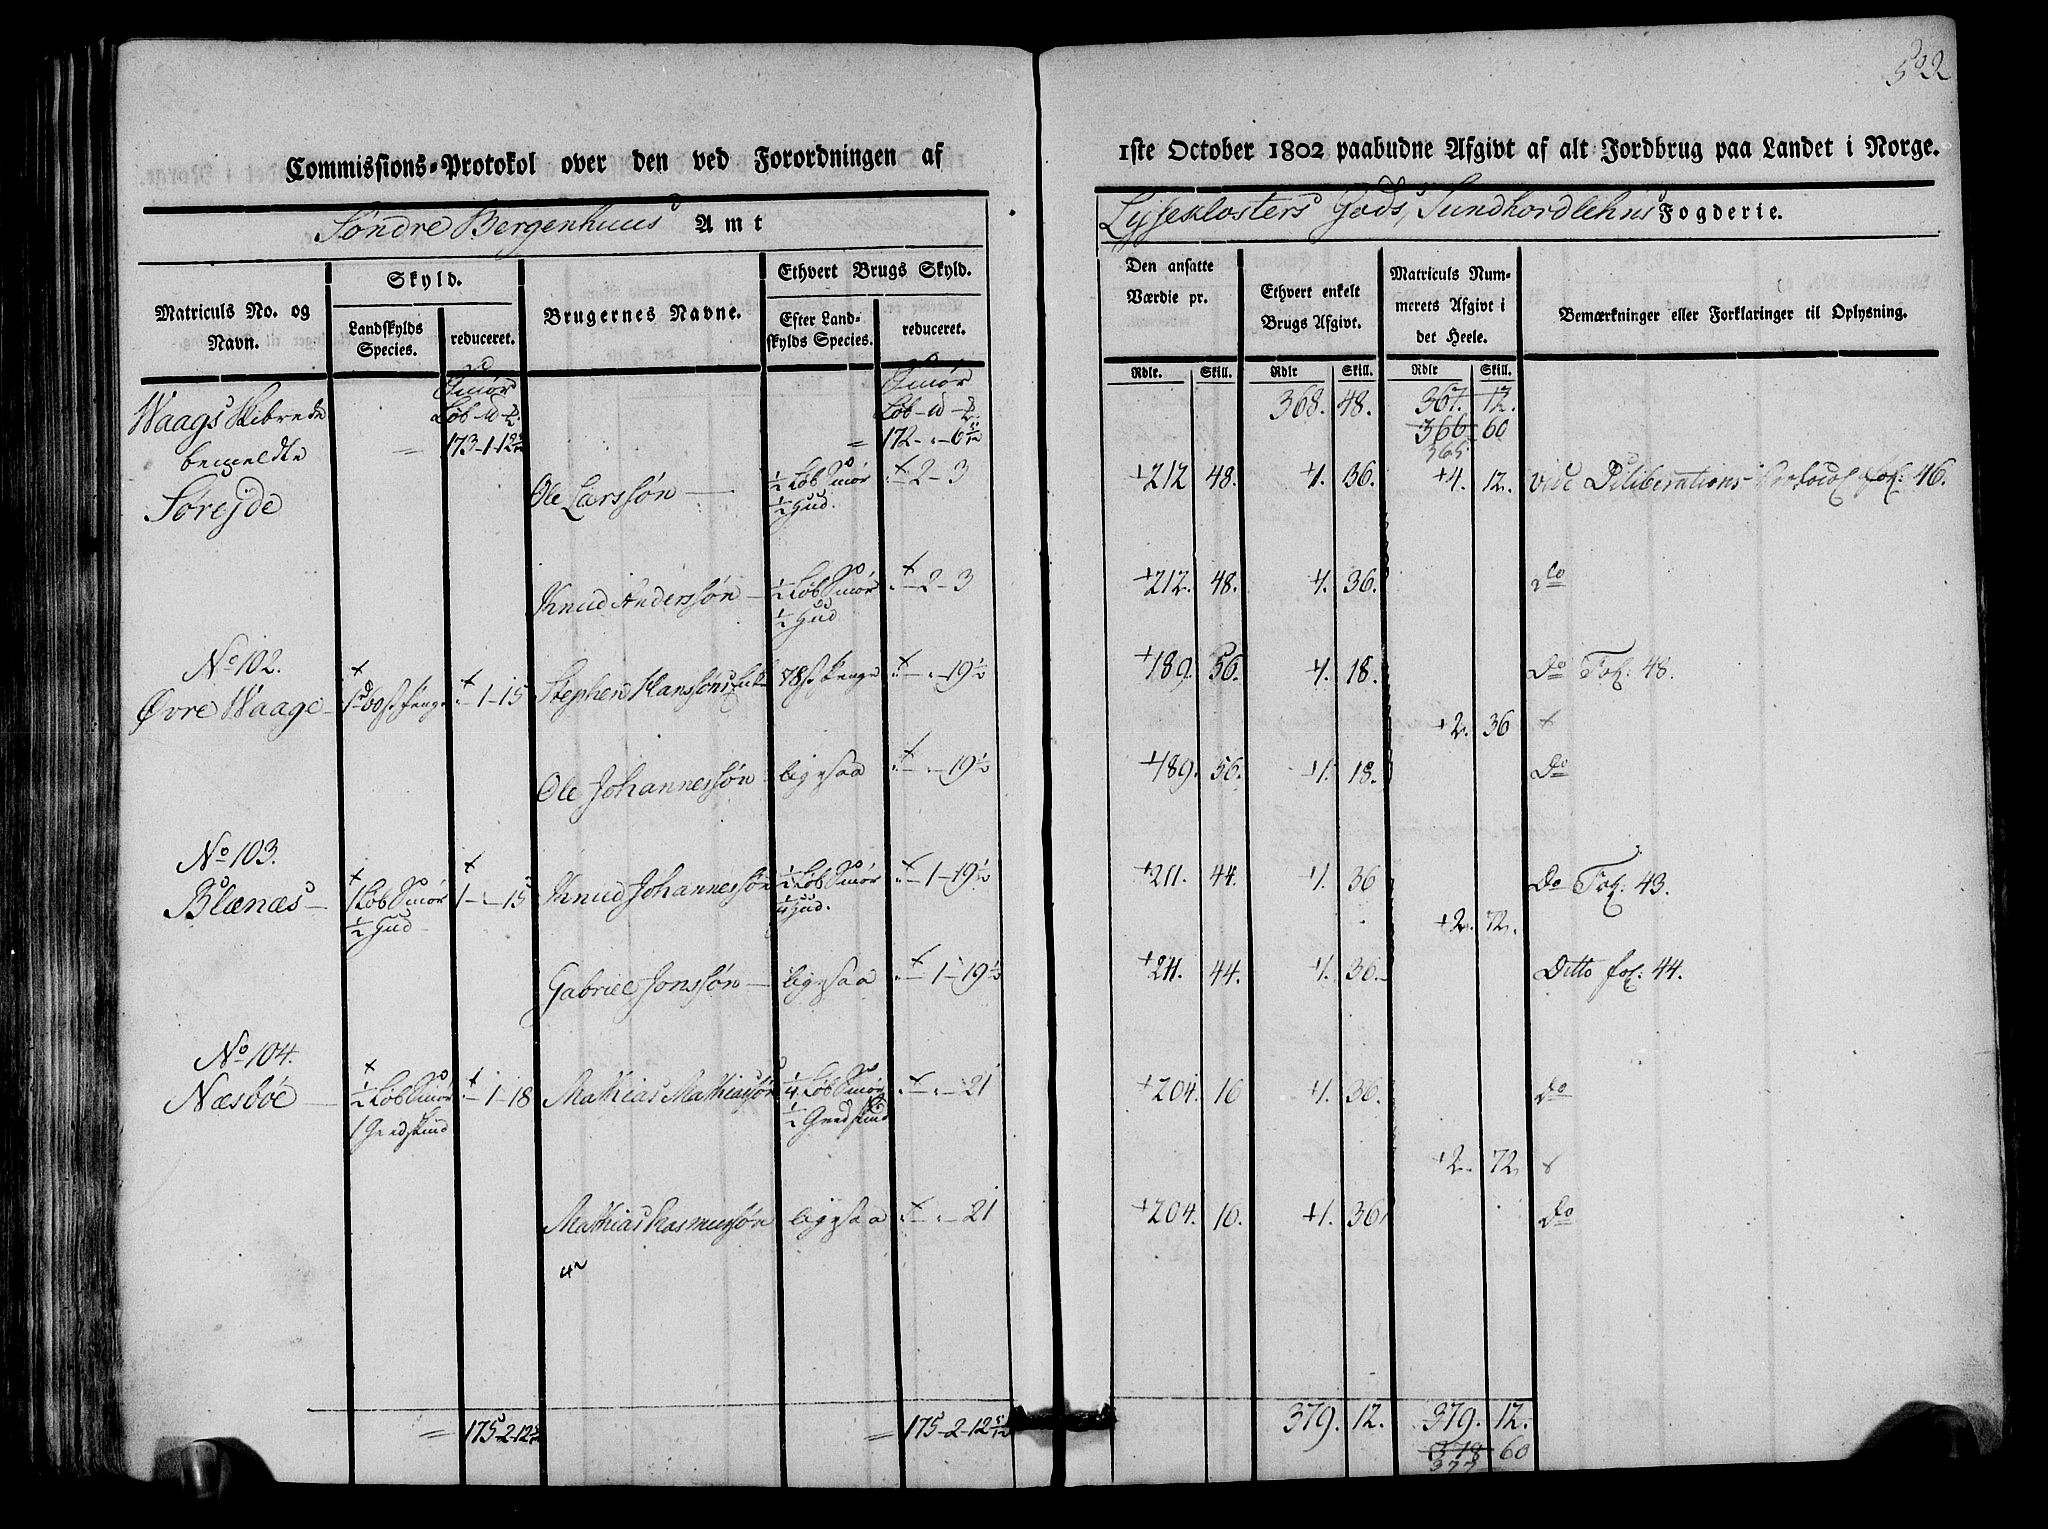 522
Commissions-Protokol over den ved Forordningen af 1ste October 1802 paabudne Afgivt af alt Jordbrug paa Landet i Norge.
Søndre Bergenhuus Amt Lyseklosters Gods, Sundhordlehns Fogderie.
Matriculs No. og Navn. Skyld. Landskylds Species. reduceret. Brugernes Navne. Ethvert Brugs Skyld. Efter Landskylds Species. reduceret. Den ansatte Værdie pr. Ethvert enkelt Brugs Afgivt. Matriculs Nummerets Afgivt i det Heele. Bemærkninger eller Forklaringer til Oplysning.
Rdlr. Skill. Rdlr Skill. Rdlr Skill.
Smør Smør
Waags Skibrede Løb - Løb - 368. 48. 367. 12.
bemeldte = 173-1-12 = 172 - " - 6 366 60
365
Sørejde Ole Larssøn — ½ Løb Smør ½ Hud. " - 2 - 3 +212 48. +1. 36. +4. 12. vide Deliberations Protocol fol: 46.
Knud Anderssøn — ½ Løb Smør ½ Hud " - 2 - 3 +212. 48. +1. 36. do
No 102.
Øvre Waage - " - 1 - 15 Stephen Hanssøns Enke " - " - 19½ +189. 56. +1. 18. Do Fol: 48.
+2. 36 x
Ole Johannessøn ligesaa " - " - 19½ +189. 56. +1. 18. Do
No 103.
Blænæs — 1 Løb Smør ½ Hud 1 - " - 15 Knud Johannessøn ½ Løb Smør ¼ Hud. " - 1 - 19½ +211. 44. +1. 36 Do Fol: 43.
+2. 72.
Gabriel Jonssøn — ligesaa " - 1 - 19½ +211. 44. +1. 36. Ditto fol: 44.
No 104.
Næsbøe — ½ Løb Smør 1 Giedskind " - 1 - 18 Mathias Mathiassøn ¼ Løb Smør ½ Giedskind " - " - 21 +204. 16 +1. 36. Do
+2. 72 x
Mathias Rasmussøn ligesaa " - " - 21 +204. 16. +1. 36 Do
= 175-2-12 = 175-2-12 379. 12. 379. 12.
378 60
377